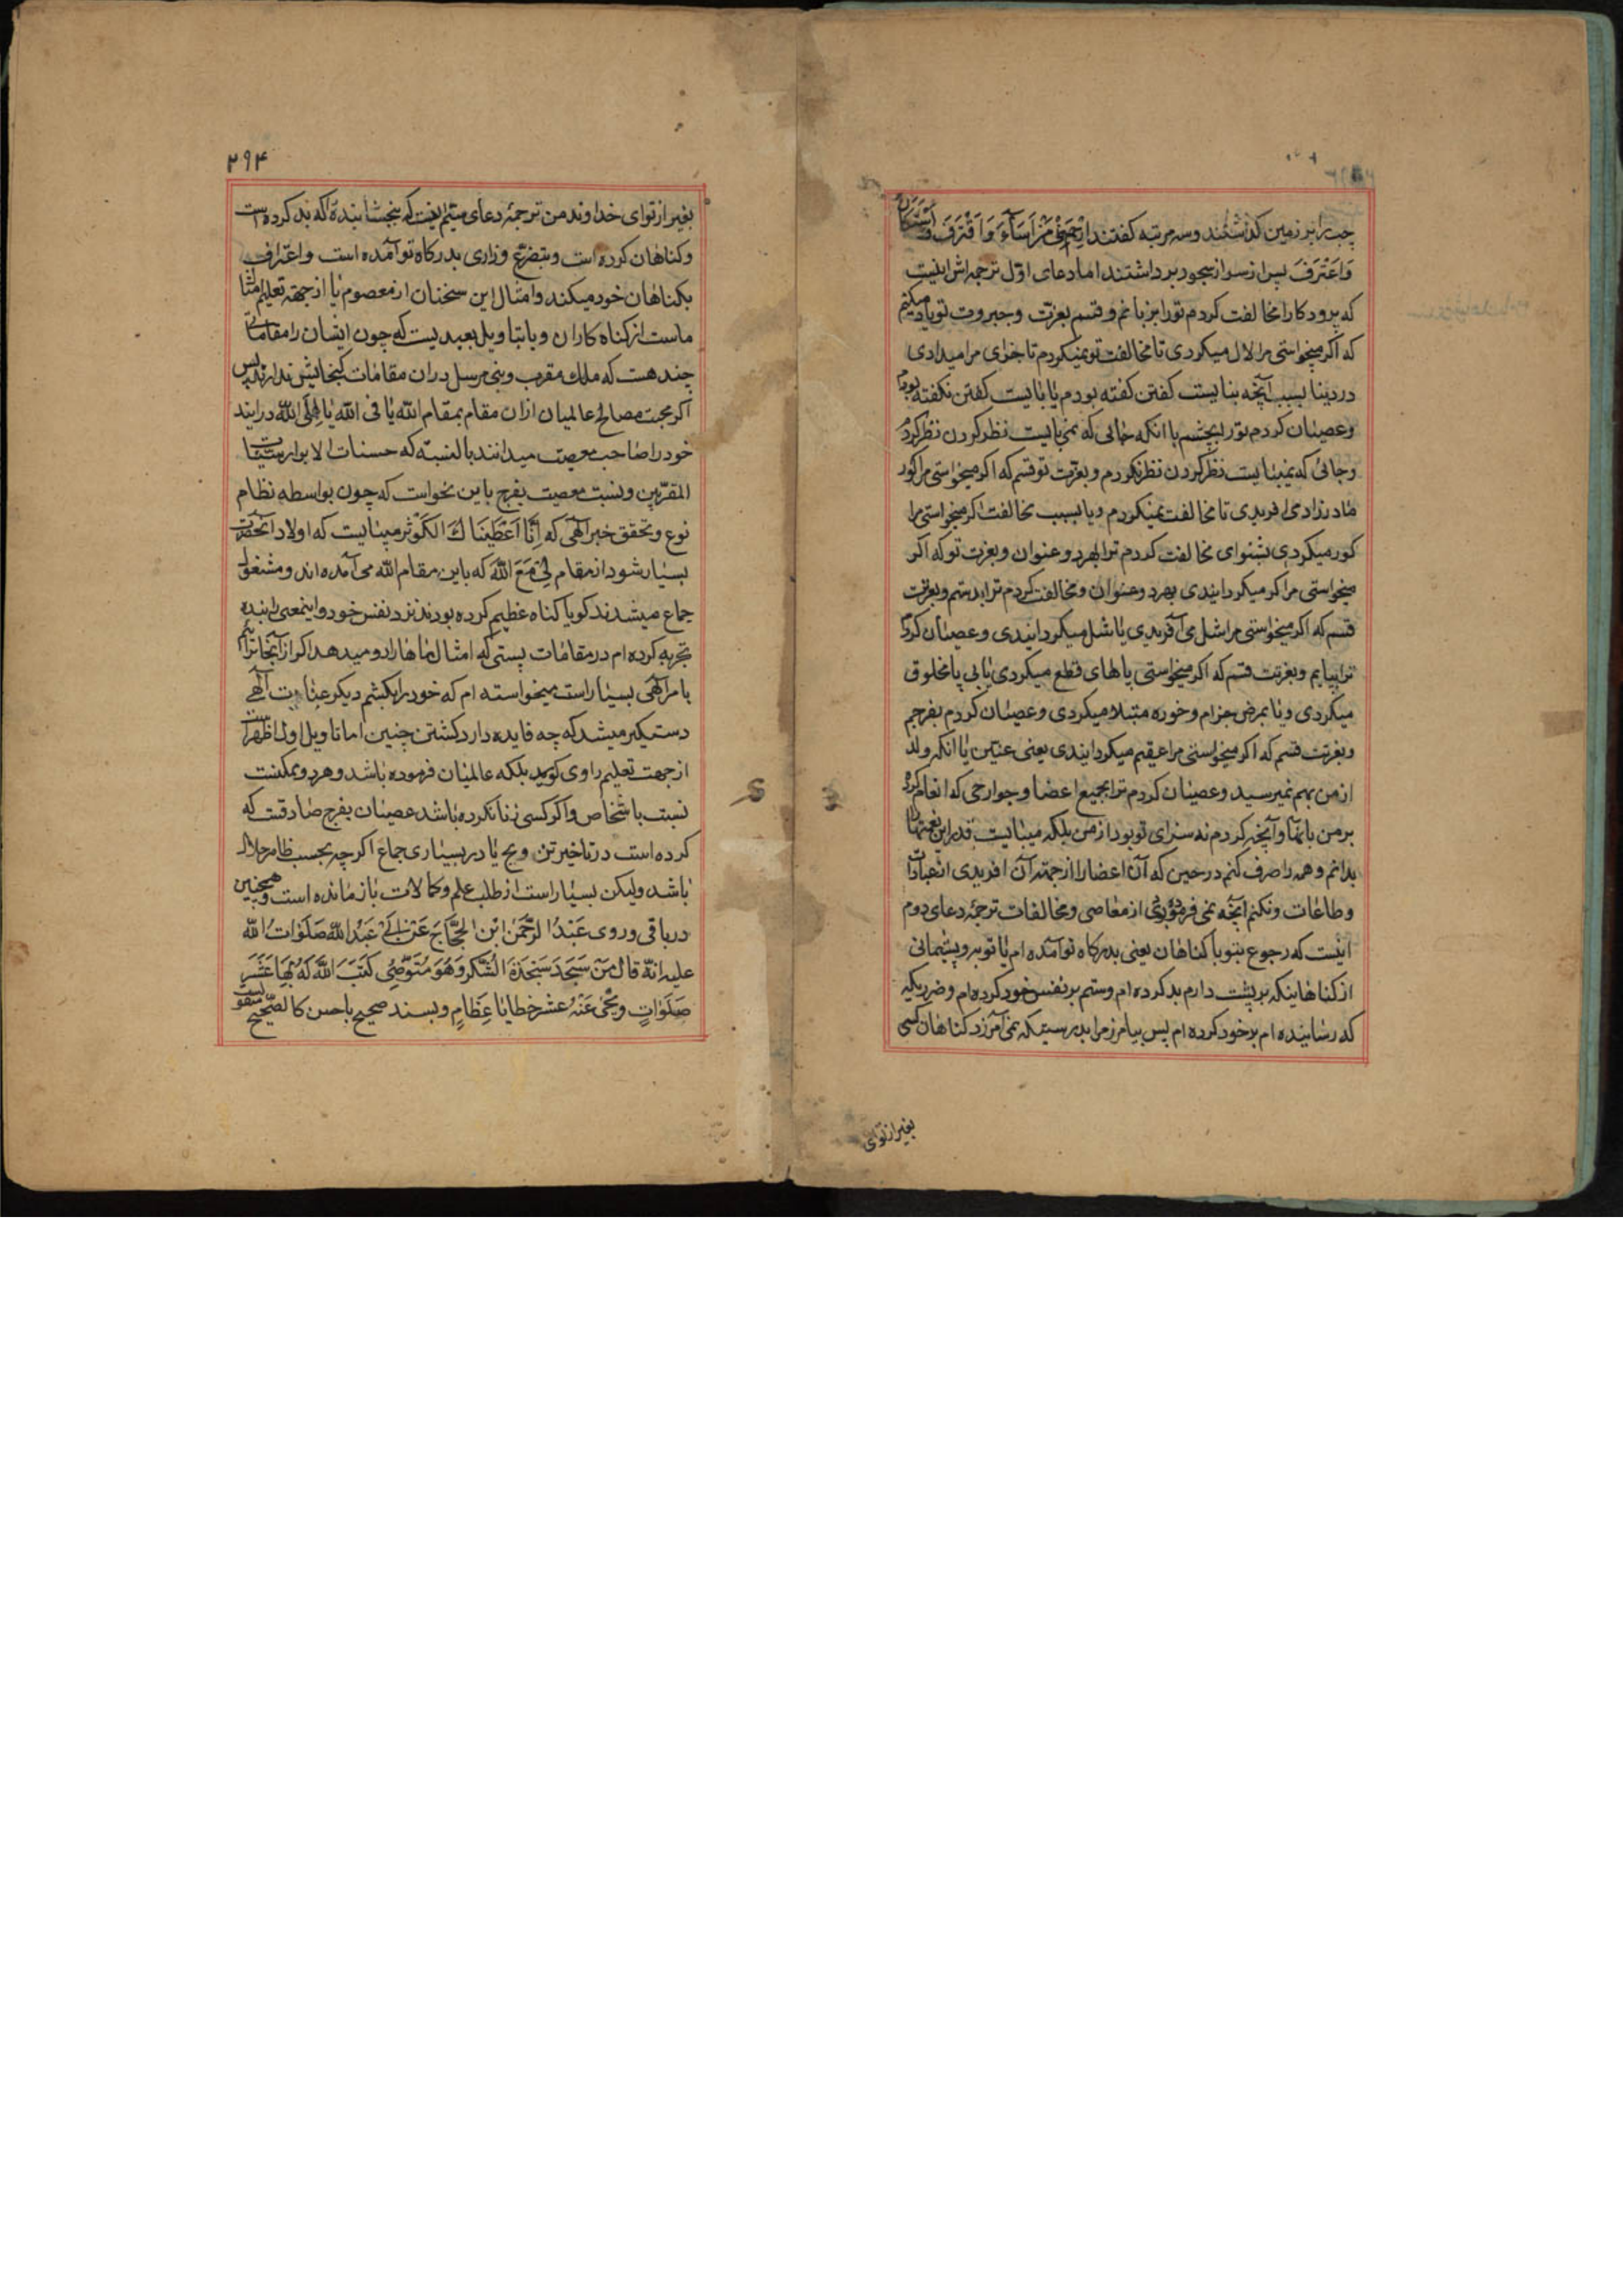 چپ را بر زمین کذاشتند و سه مرتبه کفتند ارْحَمْ مَنْ اَسَآءَ وَ اقْتَرَفَ وَ اسْتَکَانَ
وَ اعْتَرَفَ پس از سر از سجود برداشتند اما دعای اوّل ترجمه اش اینست
که پرودکارا مخالفت کردم تو را بزبانم و قسم بعزّت و جبروت تو یاد میکنم
که اکر میخواستی مرا لال میکردی تا مخالفت تو نمیکردم تا جزای مرا میدادی
در دنیا بسبب آنچه نبایست کفتن کفته بودم یا بایست کفتن نکفته بودم
و عصیان کردم تو را بچشم با انکه جائی که نمی بایست نظر کردن نظر کردم
و جائی که میبایست نظر کردن نظر نکردم و بعزت تو قسم که اکر میخواستی مرا کور
مادرزاد می افریدی تا مخالفت نمیکردم و یا بسبب مخالفت اکر میخواستی مرا
کور میکردی بشنوای مخالفت کردم ترا بهرد و عنوان و بعزت تو که اکر
میخواستی مرا کر میکردانیدی بهرد و عنوان و مخالفت کردم ترا بدستم و بعزتت
قسم که اکر میخواستی مرا شل می آفریدی یا شل میکردانیدی و عصیان کردم
ترا بپایم و بعزتت قسم که اکر میخواستی پاهای قطع میکردی یا بی پا مخلوق
میکردی و یا بمرض جزام و خوره مبتلا میکردی و عصیان کردم بفرجم
و بعزتت قسم که اکر میخواستی مرا عقیم میکردانیدی یعنی عنین یا انکه ولد
از من بهم نمیرسید و عصیان کردم ترا بجمیع اعضا و جوارحی که انعام کرده
بر من بانها و آنچه کردم نه سزای تو بود از من بلکه میبایست قدر این نعمتها را
بدانم و همه را صرف کنم در حین که آن اعضا را از جهته آن افریدی از عبادات
و طاعات و نکنم آنچه نمی فرمودی از معاصی و مخالفات ترجمهٔ دعای دوم
اینست که رجوع بتو با کناهان یعنی بدرکاه تو آمده ام یا توبه و پشیمانی
از کناهاینکه بر پشت دارم بد کرده ام و ستم بر نفس خود کرده ام و ضرریکه
که رسانیده ام بر خود کرده ام پس بیامرز مرا بدرستیکه نمی آمرزد کناهان کسی
بغیر از توای
۲۹۴
بغیر از توای خداوند من ترجمهٔ دعای سیّم اینست که ببخشا بندهٔ که بد کرده است
و کناهان کرده است و بتضرع و زاری بدرکاه تو آمده است و اعتراف
بکناهان خود میکند و امثال این سخنان از معصوم یا از جهته تعلیم امثال
ماست از کناه کاران و یا بتاویل بعیدیست که چون ایشان را مقاماتی
چند هست که ملک مقرب و نبی مرسل در ان مقامات کنجایش ندارند پس
اکر بجهت مصالح عالمیان ازان مقام بمقام الله یا فی الله یا الی الله در ایند
خود را صاحب معصیت میدانند بالنسبّه که حسنات الابرار سیئات
المقرّبین و نسبت معصیت بفرج باین نحواست که چون بواسطه نظام
نوع و تحقق خبر آلهی که اِنَّا اَعْطَیْنَاكَ الْکَوْثَر میبایست که اولاد آنحضرت
بسیار شود از مقام لِی مَعَ اللّٰه که باین مقام اللّٰه می آمده اند و مشغول
جماع میشدند کویا کناه عظیم کرده بودند نزد نفس خود و اینمعنی را بنده
تجربه کرده ام در مقامات پستی که امثال ماها را رو میدهد اکر از آنجا تنزل
با مر آلهی بسیار است میخواسته ام که خود را بکشم دیکر عنایت آلهی
دستکیر میشد که چه فایده دارد کشتن چنین اما تاویل اول اظهر است
از جهت تعلیم راوی کوید بلکه عالمیان فرموده باشد و هر دو ممکنست
نسبت باشخاص و اکر کسی زنا نکرده باشد عصیان بفرج صادقست که
کرده است در تاخیر تزویج یا در بسیاری جماع اکرچه بحسب ظاهر حلال
باشد ولیکن بسیار است از طلب علم و کمالات باز مانده است و همچنین
در باقی و روی عَبْدُ الرَّحْمٰنِ ابْنُ الْحَجَّاجِ عَنْ اَبِی عَبْدِ اللّٰهِ صَلَوَاتُ اللّٰه
علیه انّهُ قالَ مَنْ سَجَدَ سَجْدَةَ الشُّکْرِ وَهُوَ مُتَوَضِّئٌ کَتَبَ اللّٰهُ لَهُ بِهَا عَشَرَ
صَلَوَاتٍ وَ مَحٰی عَنْهُ عَشْرَ خَطَایَا عِظَامٍ و بسند صحیح یا حسن کالصّحیح